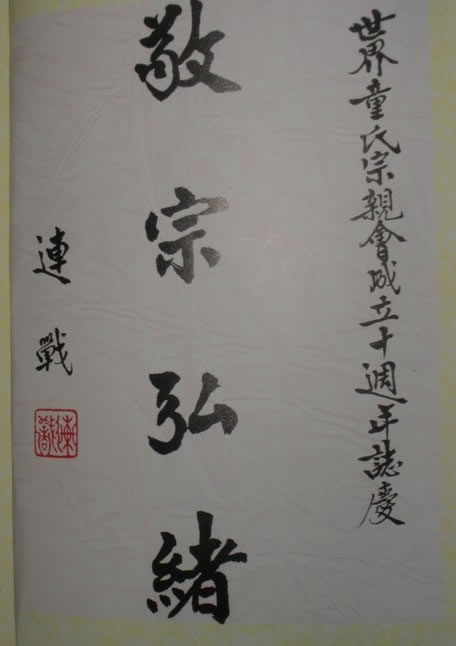 世界童氏宗親會成立十週年誌慶
敬宗弘緒
連戰
連戰